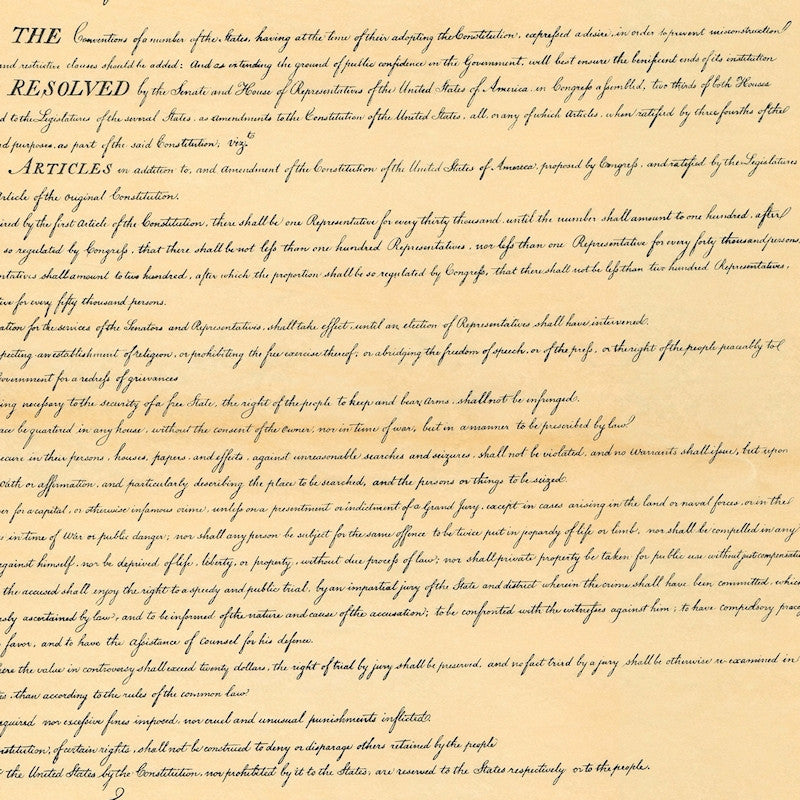 THE Conventions of a number of the States, having at the time of their adopting the Constitution, expressed a desire, in order to prevent misconstruction
and restrictive clauses should be added: And as extending the ground of public confidence in the Government, will best ensure the beneficent ends of its institution
RESOLVED by the Senate and House of Representatives of the United States of America, in Congress assembled, two thirds of both Houses
d to the Legislatures of the several States, as amendments to the Constitution of the United States, all, or any of which Articles, when ratified by three fourths of the
d purposes, as part of the said Constitution; vizt
ARTICLES in addition to, and Amendment of the Constitution of the United States of America, proposed by Congress, and ratified by the Legislatures
Article of the original Constitution.
ired by the first Article of the Constitution, there shall be one Representative for every thirty thousand, until the number shall amount to one hundred, after
so regulated by Congress, that there shall be not less than one hundred Representatives, nor less than one Representative for every forty thousand persons,
ntatives shall amount to two hundred, after which the proportion shall be so regulated by Congress, that there shall not be less than two hundred Representatives,
tive for every fifty thousand persons.
ation for the services of the Senators and Representatives, shall take effect, until an election of Representatives shall have intervened.
pecting an establishment of religion, or prohibiting the free exercise thereof; or abridging the freedom of speech, or of the press, or the right of the people peaceably to
Government for a redress of grievances
ing necessary to the security of a free State, the right of the people to keep and bear Arms, shall not be infringed.
ace be quartered in any house, without the consent of the Owner, nor in time of war, but in a manner to be prescribed by law.
ecure in their persons, houses, papers, and effects, against unreasonable searches and seizures, shall not be violated, and no Warrants shall issue, but upon
Oath or affirmation, and particularly describing the place to be searched, and the persons or things to be seized.
er for a capital, or otherwise infamous crime, unless on a presentment or indictment of a Grand Jury, except in cases arising in the land or naval forces, or in the
in time of War or public danger; nor shall any person be subject for the same offence to be twice put in jeopardy of life or limb, nor shall be compelled in any
against himself, nor be deprived of life, liberty, or property, without due process of law; nor shall private property be taken for public use without just compensation
the accused shall enjoy the right to a speedy and public trial, by an impartial jury of the State and district wherein the crime shall have been committed, which
usly ascertained by law, and to be informed of the nature and cause of the accusation; to be confronted with the witnesses against him; to have compulsory proce
favor, and to have the Assistance of Counsel for his defence.
ere the value in controversy shall exceed twenty dollars, the right of trial by jury shall be preserved, and no fact tried by a jury shall be otherwise re-examined in
es, than according to the rules of the common law.
equired nor excessive fines imposed, nor cruel and unusual punishments inflicted.
nstitution, of certain rights, shall not be construed to deny or disparage others retained by the people
the United States by the Constitution, nor prohibited by it to the States, are reserved to the States respectively or to the people.